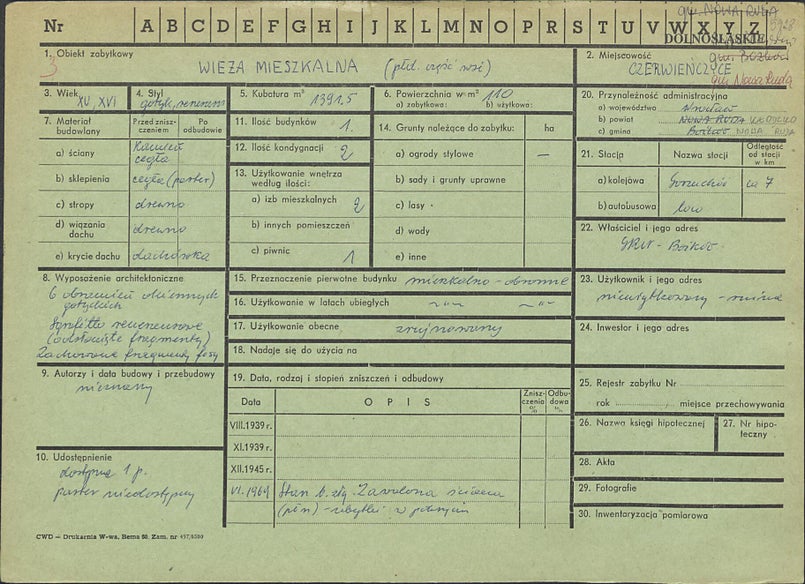 Nr A B C D E F G H I J K L M N O P R S T U V W X Y Z
gm. NOWA RUDA
DOLNOŚLĄSKIE
1. Obiekt zabytkowy
3
WIEŻA MIESZKALNA (płd. część wsi)
2. Miejscowość
gm. Bożków
CZERWIEŃCZYCE
gm. Nowa Ruda
3. Wiek
XV, XVI
4. Styl
gotyk, renesans
5. Kubatura m³
1391,5
6. Powierzchnia w m² 110
a) zabytkowa: b) użytkowa:
20. Przynależność administracyjna
a) województwo Wrocław
b) powiat NOWA RUDA KŁODZKO
c) gmina Bożków NOWA RUDA
7. Materiał budowlany
Przed zniszczeniem
Po odbudowie
a) ściany kamień cegła
b) sklepienia cegła (parter)
c) stropy drewno
d) wiązania dachu drewno
e) krycie dachu dachówka
11. Ilość budynków 1.
12. Ilość kondygnacji 2
13. Użytkowanie wnętrza według ilości:
a) izb mieszkalnych 2
b) innych pomieszczeń
c) piwnic 1
14. Grunty należące do zabytku: ha
a) ogrody stylowe —
b) sady i grunty uprawne
c) lasy
d) wody
e) inne
21. Stacja Nazwa stacji Odległość od stacji w km
a) kolejowa Gorzuchów ca 7
b) autobusowa
22. Właściciel i jego adres
GRN - Bożków
8. Wyposażenie architektoniczne
6 obramień okiennych
gotyckich
Sgrafitto renesansowe
(odsłonięte fragmenty)
Zachowane fragmenty fosy
15. Przeznaczenie pierwotne budynku mieszkalno-obronne
16. Użytkowanie w latach ubiegłych -„- -„-
17. Użytkowanie obecne zrujnowany
18. Nadaje się do użycia na
23. Użytkownik i jego adres
nieużytkowany - ruina
24. Inwestor i jego adres
9. Autorzy i data budowy i przebudowy
nieznany
19. Data, rodzaj i stopień zniszczeń i odbudowy
Data O P I S Zniszczenia % Odbudowa %
VIII.1939 r.
XI.1939 r.
XII.1945 r.
VI. 1964 Stan b. zły. Zawalona ściana
(płn)
25. Rejestr zabytku Nr
rok miejsce przechowywania
26. Nazwa księgi hipotecznej
27. Nr hipoteczny
28. Akta
29. Fotografie
30. Inwentaryzacja pomiarowa
10. Udostępnienie
dostępne 1 p.
parter niedostępny
CWD — Drukarnia W-wa, Bema 60. Zam. nr